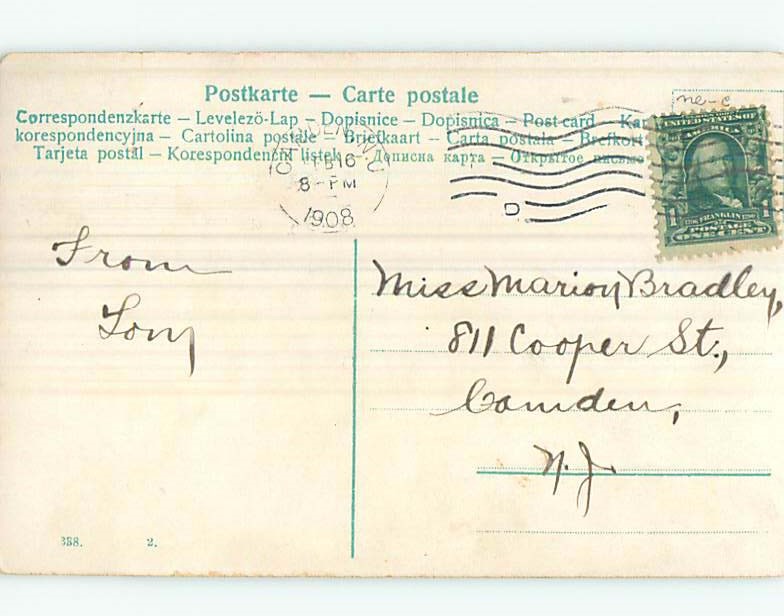 Postkarte — Carte postale
Correspondenzkarte — Levelező-Lap — Dopisnice — Dopisnica — Post card — Kar
korespondencyjna — Cartolina postale — Briefkaart — Carta postala — Brefkort
Tarjeta postál — Korespondenční lístek — Дописна карта — Открытое письмо
ne-c
CAMDEN, N.J.
FEB 16
8 - PM
1908
D
UNITED STATES OF
AMERICA
1 FRANKLIN 1
POSTAGE
ONE CENT
From
Miss Marion Bradley,
811 Cooper St.,
Camden,
N.J.
388. 2.